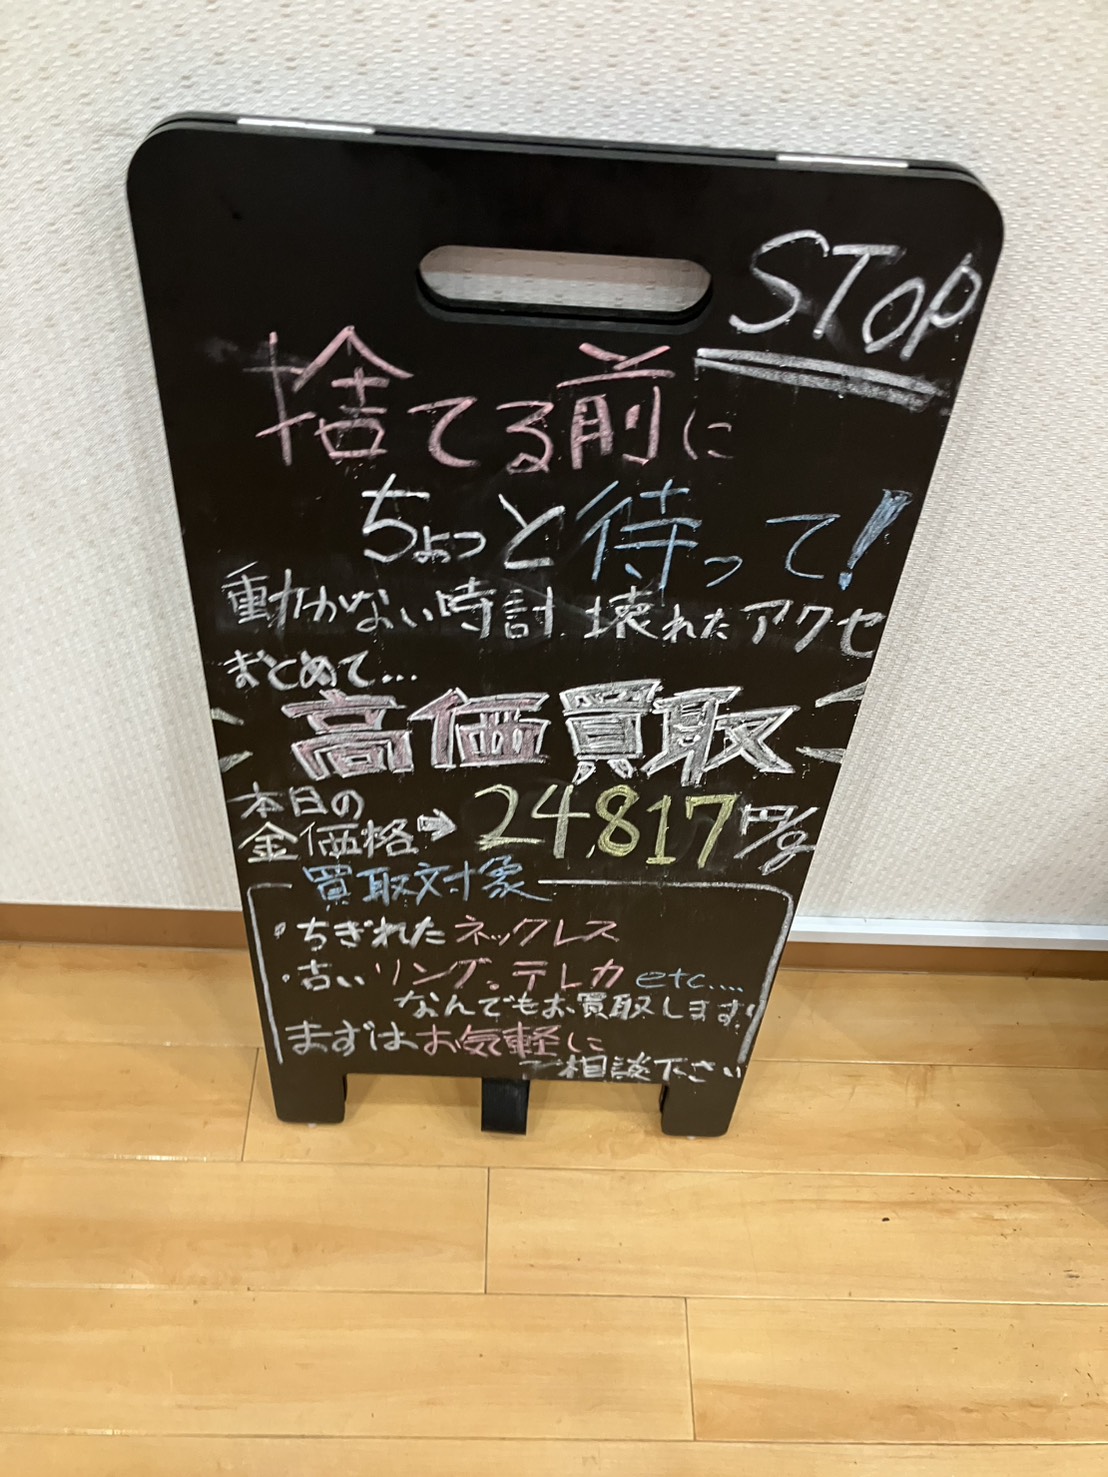 STOP
捨てる前に
ちょっと待って!
動かない時計 壊れたアクセ
まとめて...
高価買取
本日の
金価格➡24,817円/g
買取対象
・ちぎれたネックレス
・古いリング。テレカ etc....
なんでもお買取します!
まずはお気軽に
ご相談下さい